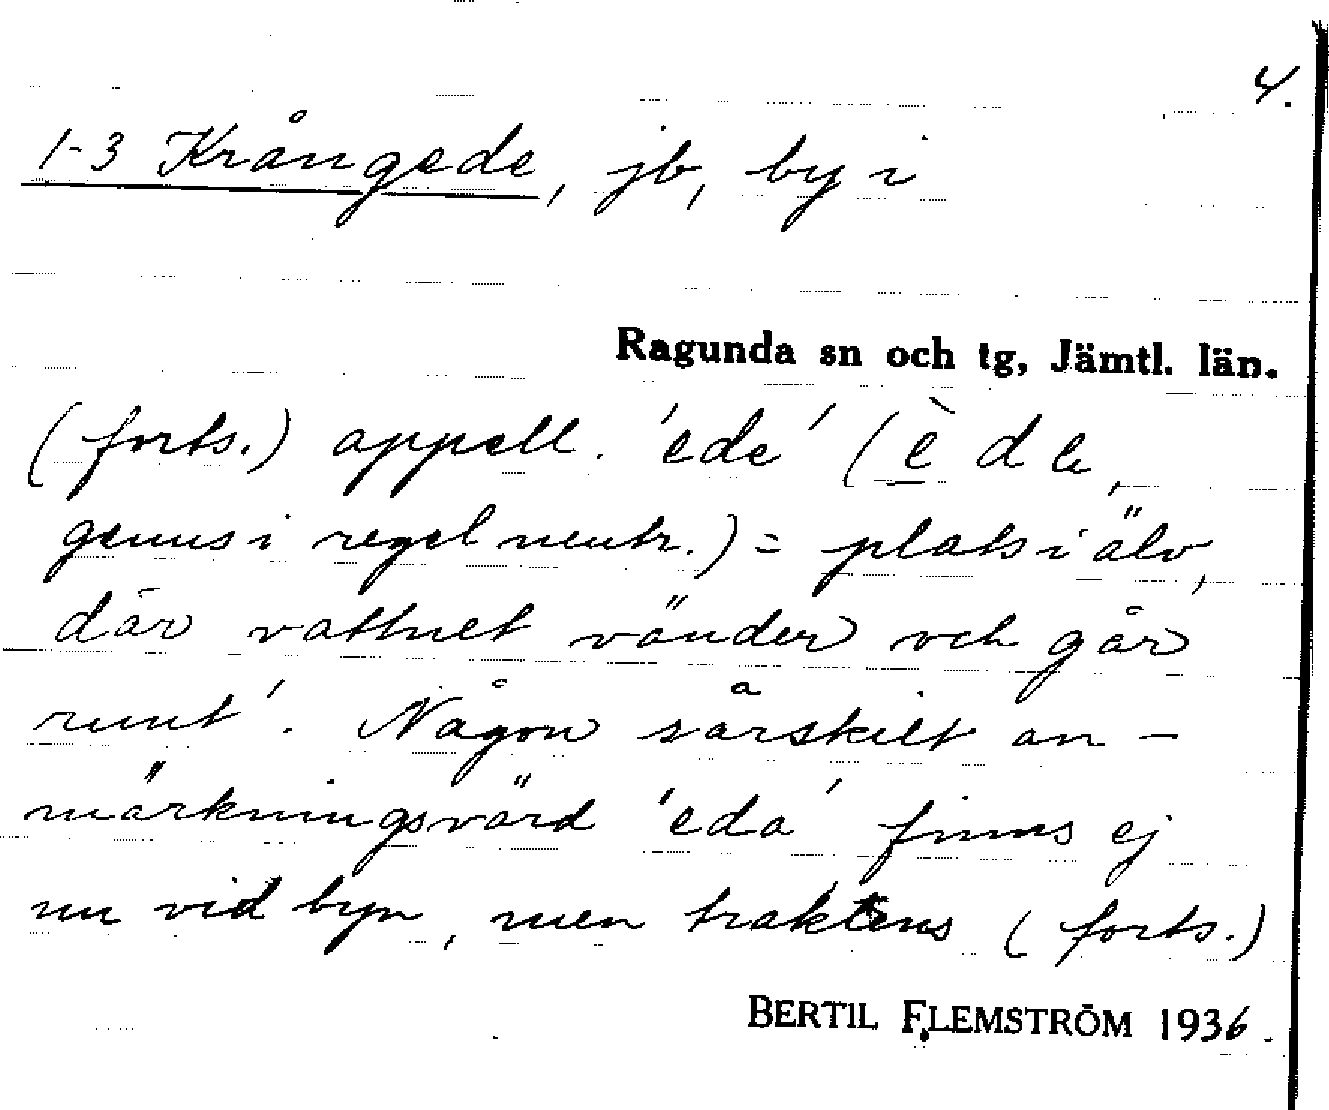 4.
1-3 Krångede, jb, by i
Ragunda sn och tg, Jämtl. län.
(forts.) appell. 'ede' (è de,
genus i regel neutr.) = plats i älv,
där vattnet vänder och går
runt'. Någon särskilt an-
märkningsvärd 'eda' finns ej
nu vid byn, men traktens (forts.)
BERTIL FLEMSTRÖM 1936.